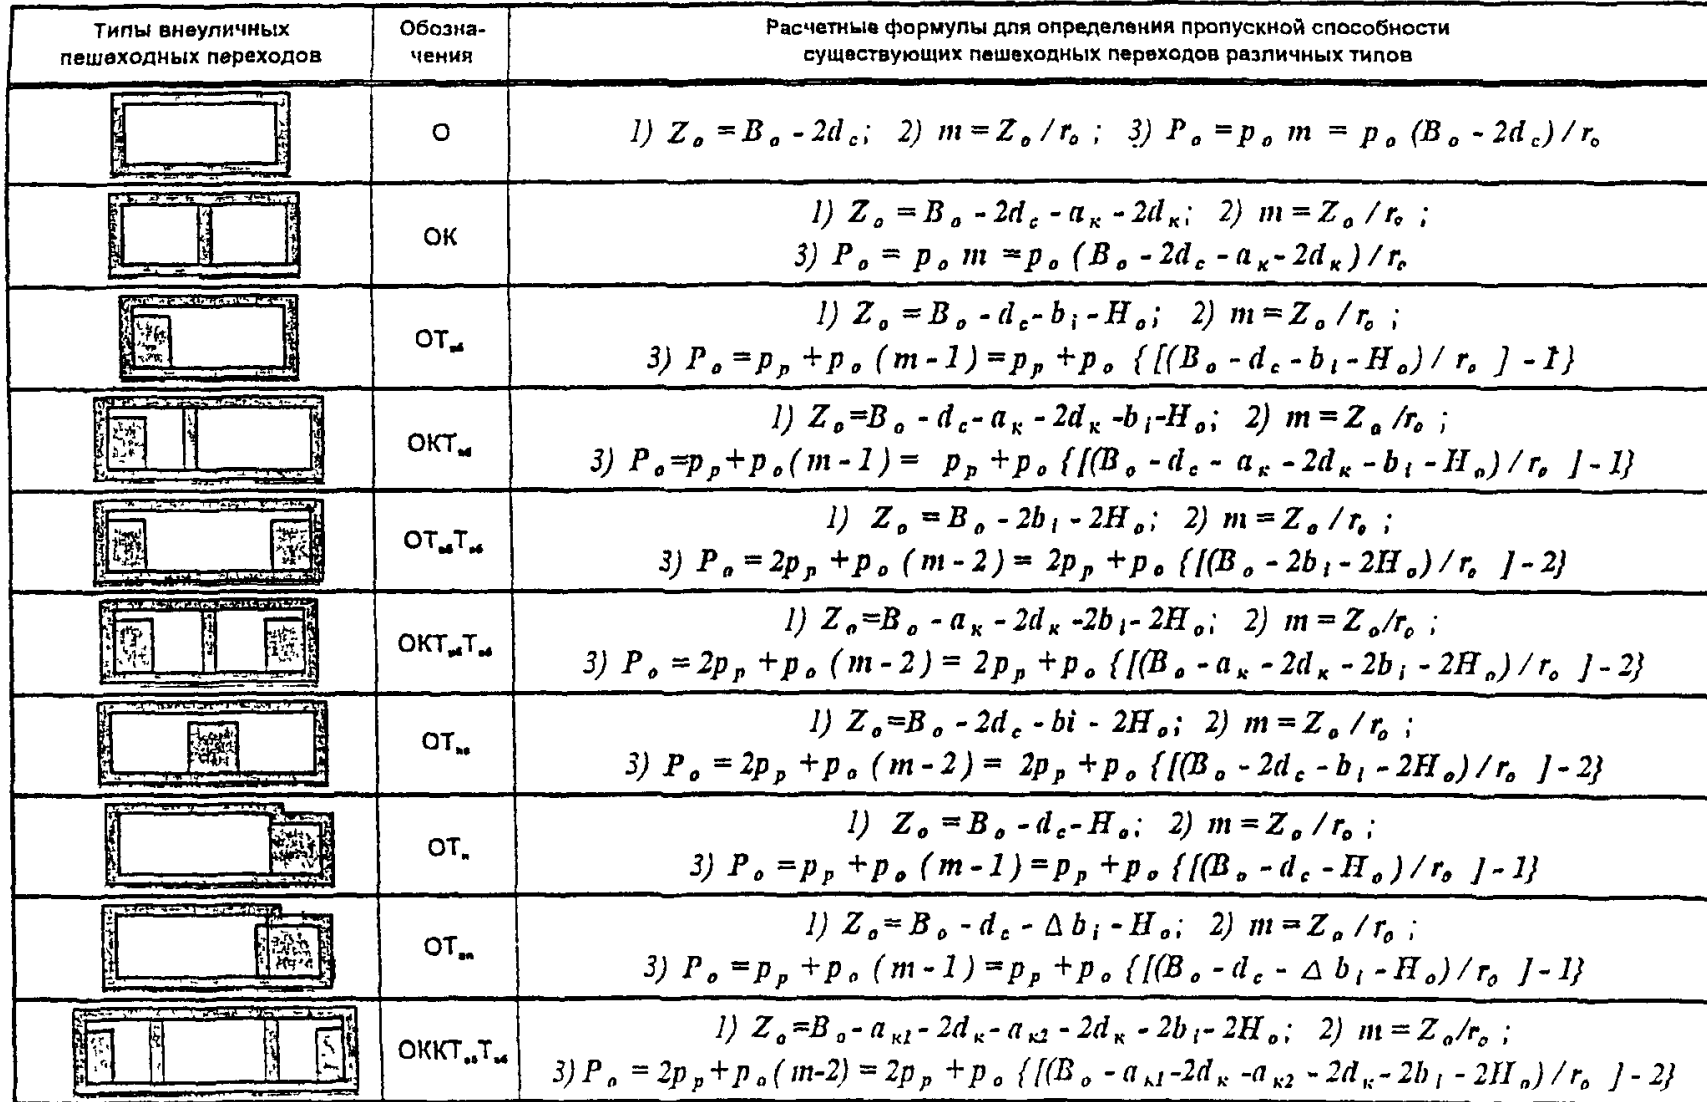 Типы внеуличных
пешеходных переходов
Обозна-
чения
Расчетные формулы для определения пропускной способности
существующих пешеходных переходов различных типов
О
1) Z₀ = B₀ - 2d_c; 2) m = Z₀ / r₀ ; 3) P₀ = p₀ m = p₀ (B₀ - 2d_c) / r₀
ОК
1) Z₀ = B₀ - 2d_c - a_к - 2d_к; 2) m = Z₀ / r₀ ;
3) P₀ = p₀ m = p₀ (B₀ - 2d_c - a_к - 2d_к) / r₀
ОТ
1) Z₀ = B₀ - d_c - b_i - H₀; 2) m = Z₀ / r₀ ;
3) P₀ = p_p + p₀ (m - 1) = p_p + p₀ {[(B₀ - d_c - b_i - H₀) / r₀ ] - 1}
ОКТ
1) Z₀ = B₀ - d_c - a_к - 2d_к - b_i - H₀; 2) m = Z₀ / r₀ ;
3) P₀ = p_p + p₀ (m - 1) = p_p + p₀ {[(B₀ - d_c - a_к - 2d_к - b_i - H₀) / r₀ ] - 1}
ОТ Т
1) Z₀ = B₀ - 2b_i - 2H₀; 2) m = Z₀ / r₀ ;
3) P₀ = 2p_p + p₀ (m - 2) = 2p_p + p₀ {[(B₀ - 2b_i - 2H₀) / r₀ ] - 2}
ОКТ Т
1) Z₀ = B₀ - a_к - 2d_к - 2b_i - 2H₀; 2) m = Z₀ / r₀ ;
3) P₀ = 2p_p + p₀ (m - 2) = 2p_p + p₀ {[(B₀ - a_к - 2d_к - 2b_i - 2H₀) / r₀ ] - 2}
ОТ
1) Z₀ = B₀ - 2d_c - bi - 2H₀; 2) m = Z₀ / r₀ ;
3) P₀ = 2p_p + p₀ (m - 2) = 2p_p + p₀ {[(B₀ - 2d_c - b_i - 2H₀) / r₀ ] - 2}
ОТ
1) Z₀ = B₀ - d_c - H₀; 2) m = Z₀ / r₀ ;
3) P₀ = p_p + p₀ (m - 1) = p_p + p₀ {[(B₀ - d_c - H₀) / r₀ ] - 1}
ОТ
1) Z₀ = B₀ - d_c - Δ b_i - H₀; 2) m = Z₀ / r₀ ;
3) P₀ = p_p + p₀ (m - 1) = p_p + p₀ {[(B₀ - d_c - Δ b_i - H₀) / r₀ ] - 1}
ОККТ Т
1) Z₀ = B₀ - a_к1 - 2d_к - a_к2 - 2d_к - 2b_i - 2H₀; 2) m = Z₀ / r₀ ;
3) P₀ = 2p_p + p₀ (m-2) = 2p_p + p₀ {[(B₀ - a_к1 - 2d_к - a_к2 - 2d_к - 2b_i - 2H₀) / r₀ ] - 2}